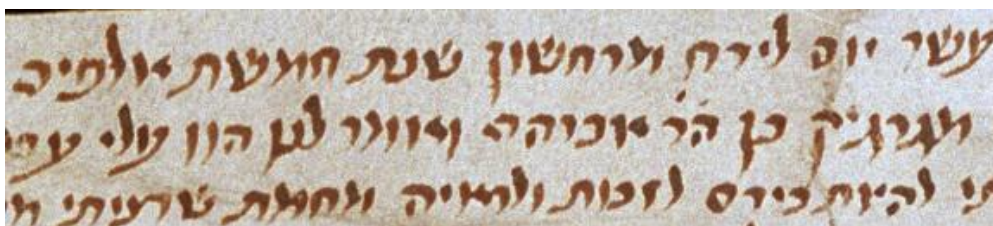 עשר יום לירח מרחשון שנת חמשת אלפים
בן הר ואמר לנו הוו עלי
להיות בידם לזכות ולראיה מחמת שרציתי